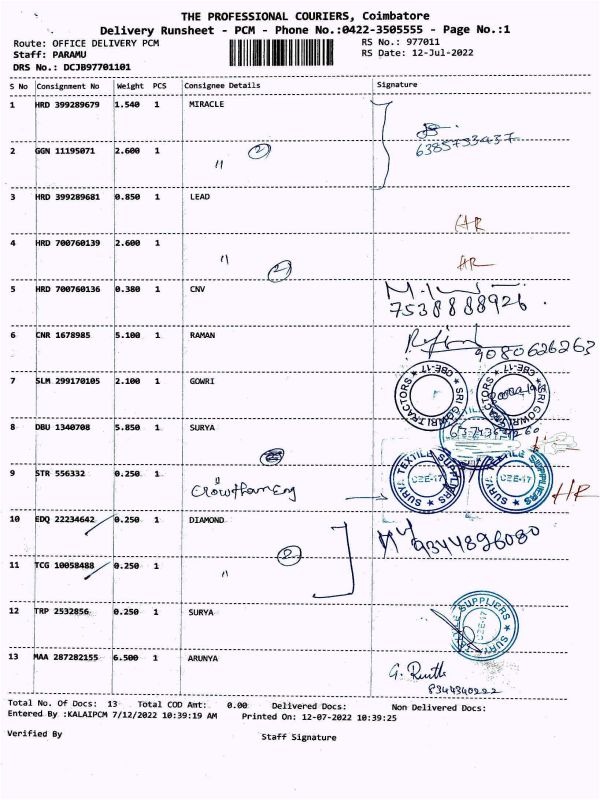 THE PROFESSIONAL COURIERS, Coimbatore
Delivery Runsheet - PCM - Phone No.:0422-3505555 - Page No.:1
Route: OFFICE DELIVERY PCM RS No.: 977011
Staff: PARAMU RS Date: 12-Jul-2022
DRS No.: DCJB97701101
S No Consignment No Weight PCS Consignee Details Signature
1 HRD 399289679 1.540 1 MIRACLE
6385733437
2 GGN 11195071 2.600 1 " 2
3 HRD 399289681 0.850 1 LEAD
HR
4 HRD 700760139 2.600 1 " 2 HR
5 HRD 700760136 0.380 1 CNV
7538888926
6 CNR 1678985 5.100 1 RAMAN
9080626263
7 SLM 299170105 2.100 1 GOWRI
SRI GOWRI TRACTORS CBE-17 SRI GOWRI TRACTORS CBE-17
8 DBU 1340708 5.850 1 SURYA
9 STR 556332 0.250 1 "
SURYA TEXTILE SUPPLIERS CBE-17 SURYA TEXTILE SUPPLIERS CBE-17 HR
10 EDQ 22234642 0.250 1 DIAMOND
9344896080
11 TCG 10058488 0.250 1 " 2
12 TRP 2532856 0.250 1 SURYA
TEXTILE SUPPLIERS CBE-17
13 MAA 287282155 6.500 1 ARUNYA
8344340222
Total No. Of Docs: 13 Total COD Amt: 0.00 Delivered Docs: Non Delivered Docs:
Entered By :KALAIPCM 7/12/2022 10:39:19 AM Printed On: 12-07-2022 10:39:25
Verified By Staff Signature